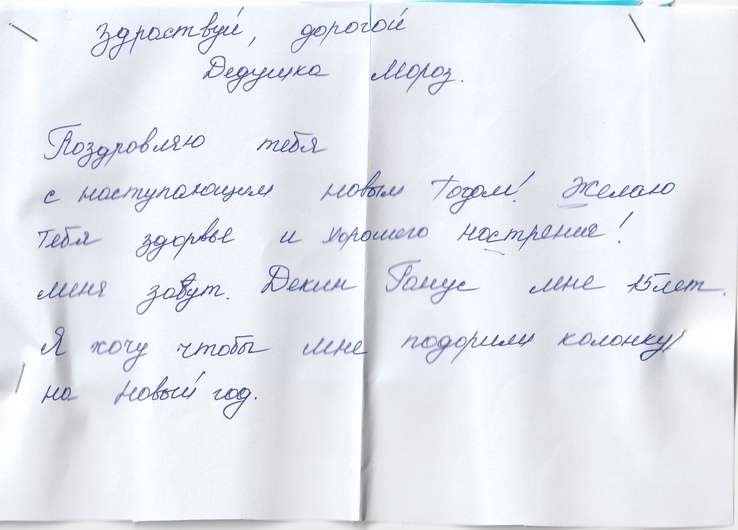 Здраствуй, дорогой
Дедушка Мороз.
Поздровляю тебя
с наступающем новым Годом! Желаю
тебя здорвье и хорошего настрения!
меня завут. Декин Ганус мне 15лет.
Я хочу чтобы мне подорили колонку
на новый год.